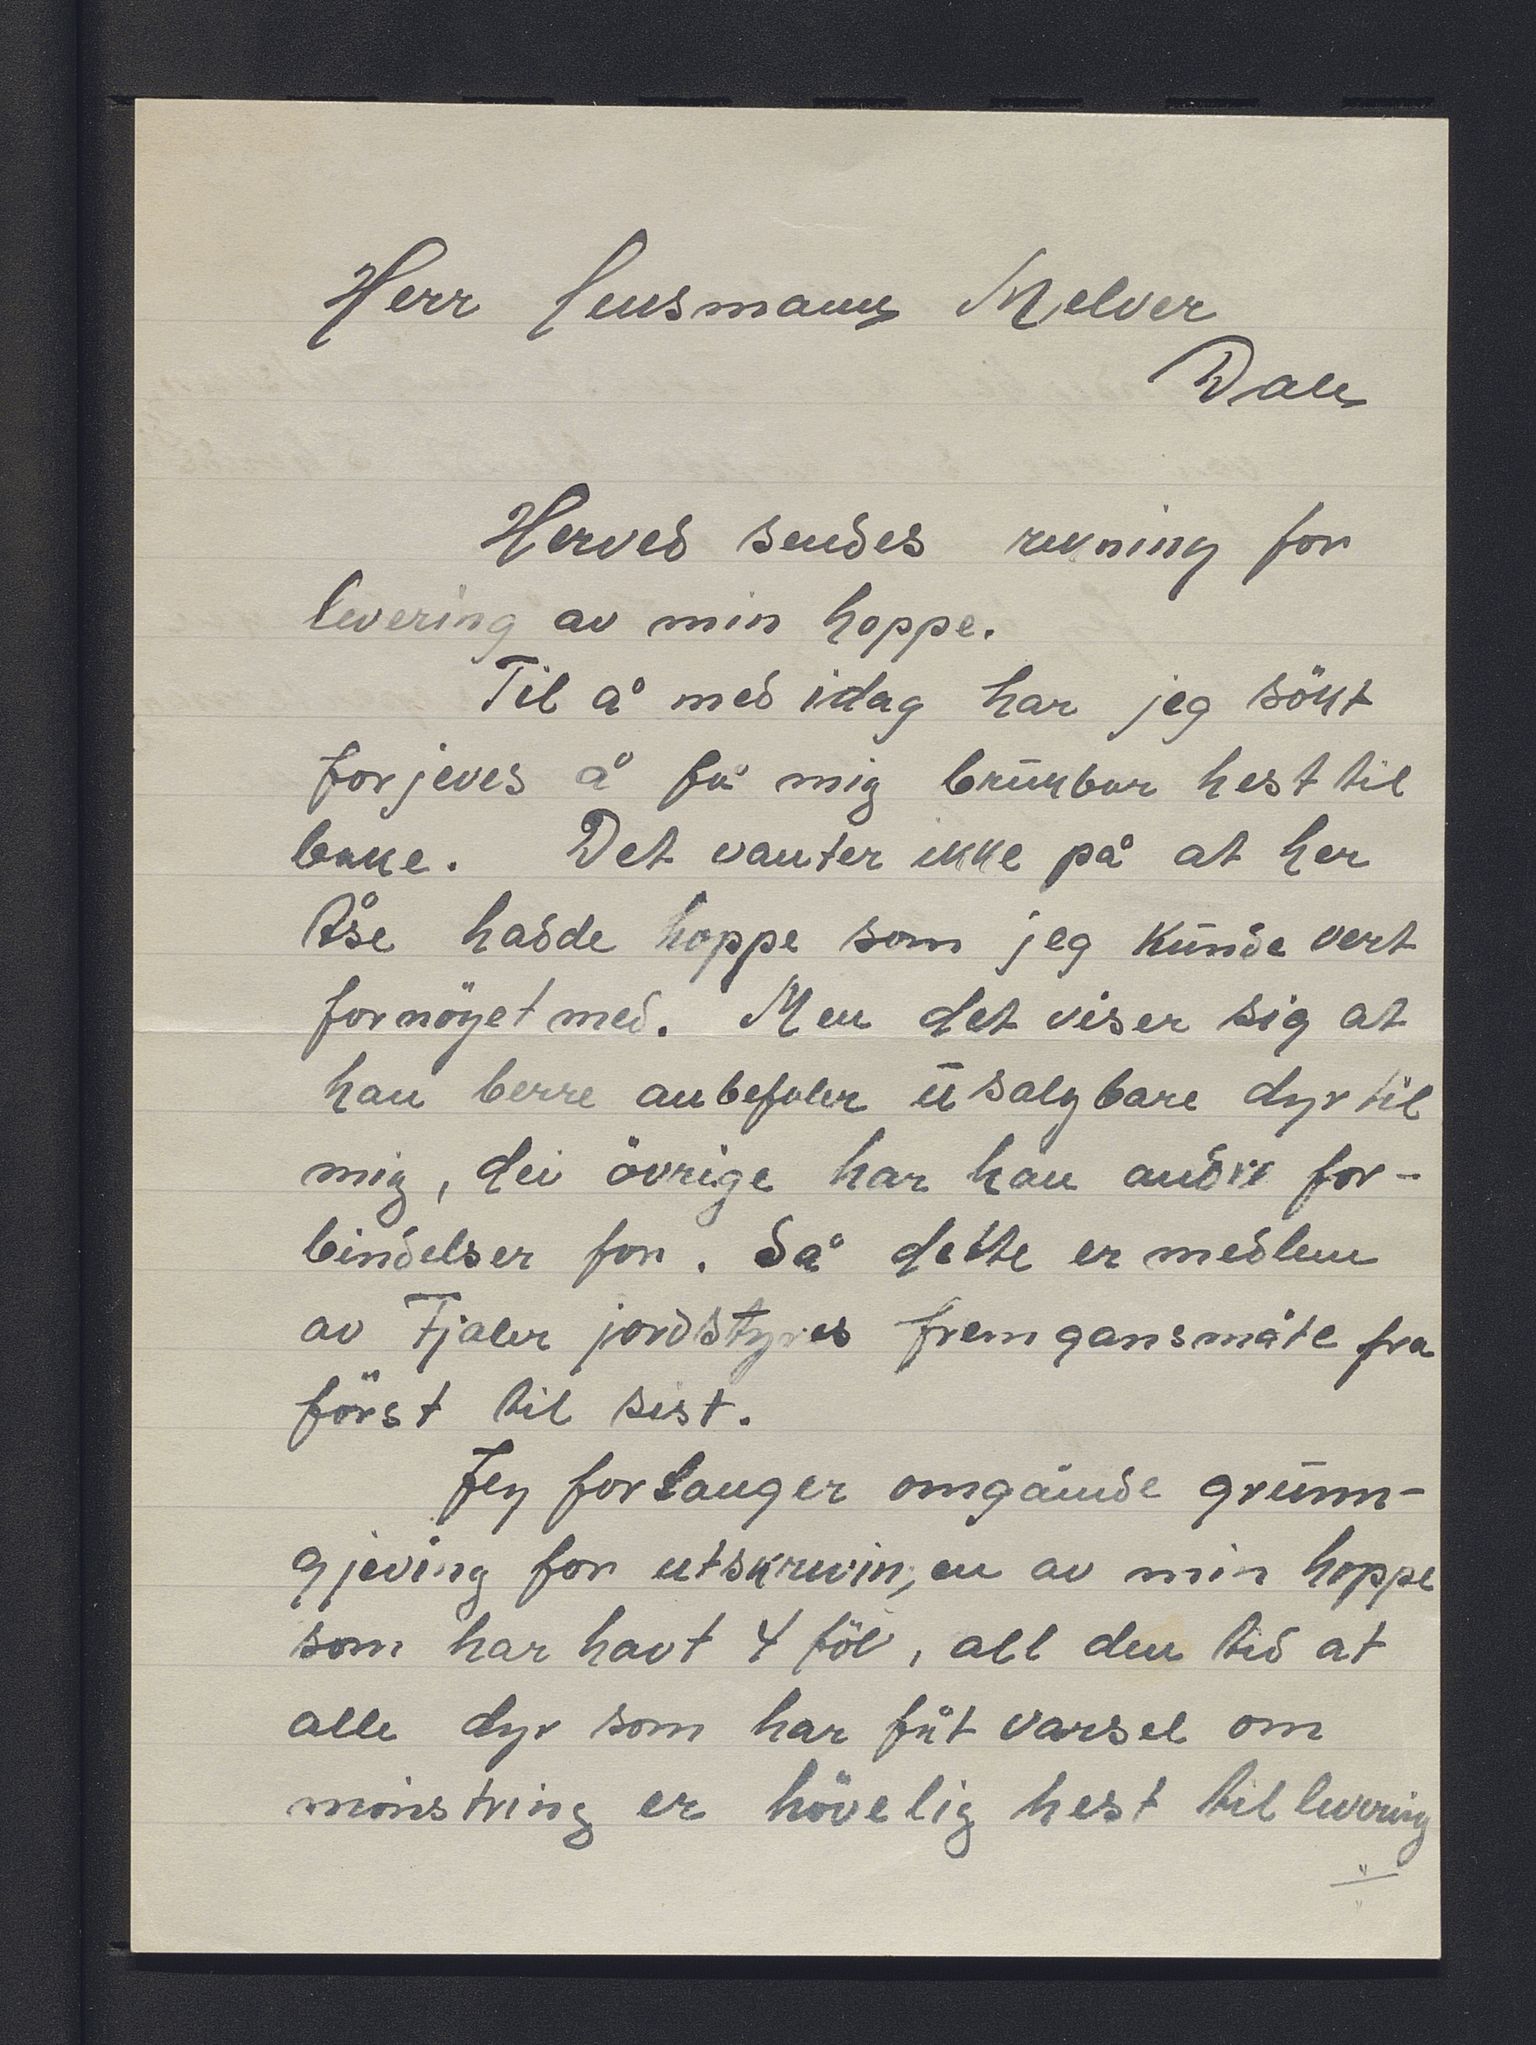 Herr Lensmann Melver
Dale
Herved sendes rekning for
levering av min hoppe.
Til å med idag har jeg sökt
forjeves å få mig brukbar hest til
bake. Det vanter ikke på at her
Åse hadde hoppe som jeg kunde vert
fornöyet med. Men det viser sig at
han berre anbefaler usalgbare dyr til
mig, dei övrige har han andre for-
bindelser for. Så dette er medlem
av Fjaler jordstyres fremgansmåte fra
först til sist.
Jeg forlanger omgående grunn-
gjeving for utskrivingen av min hoppe
som har havt 4 föl, all den tid at
alle dyr som har fåt varsel om
mönstring er hövelig hest til levering